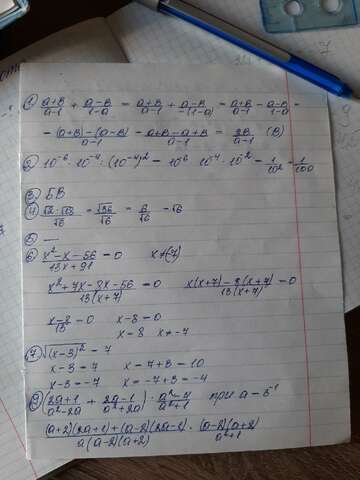 ① a+b/a-1 + a-b/1-a = a+b/a-1 + a-b/-(1-a) = a+b/a-1 - a-b/1-a =
= (a+b)-(a-b)/a-1 = a+b-a+b/a-1 = 2b/a-1 (B)
② 10⁻⁶ · 10⁻⁴ : (10⁻⁴)² = 10⁶ 10⁻⁴ · 10⁻² = 1/10² = 1/100
③ БВ
④ √2·√18/√6 = √36/√6 = 6/√6 = √6
⑤ —
⑥ x²-x-56/13x+91 = 0 x≠(-7)
x²+7x-8x-56/13(x+7) = 0 x(x+7)-8(x+7)/13(x+7) = 0
x-8/13 = 0 x-8=0
x=8 x≠-7
⑦ √(x-3)² = 7
x-3=7 x=7+3=10
x-3=-7 x=-7+3=-4
⑧ (2a+1/a²-2a + 2a-1/a²+2a) · a²-4/a²+1 при a=5⁻¹
(a+2)(2a+1)+(a-2)(2a-1)/a(a-2)(a+2) · (a-2)(a+2)/a²+1